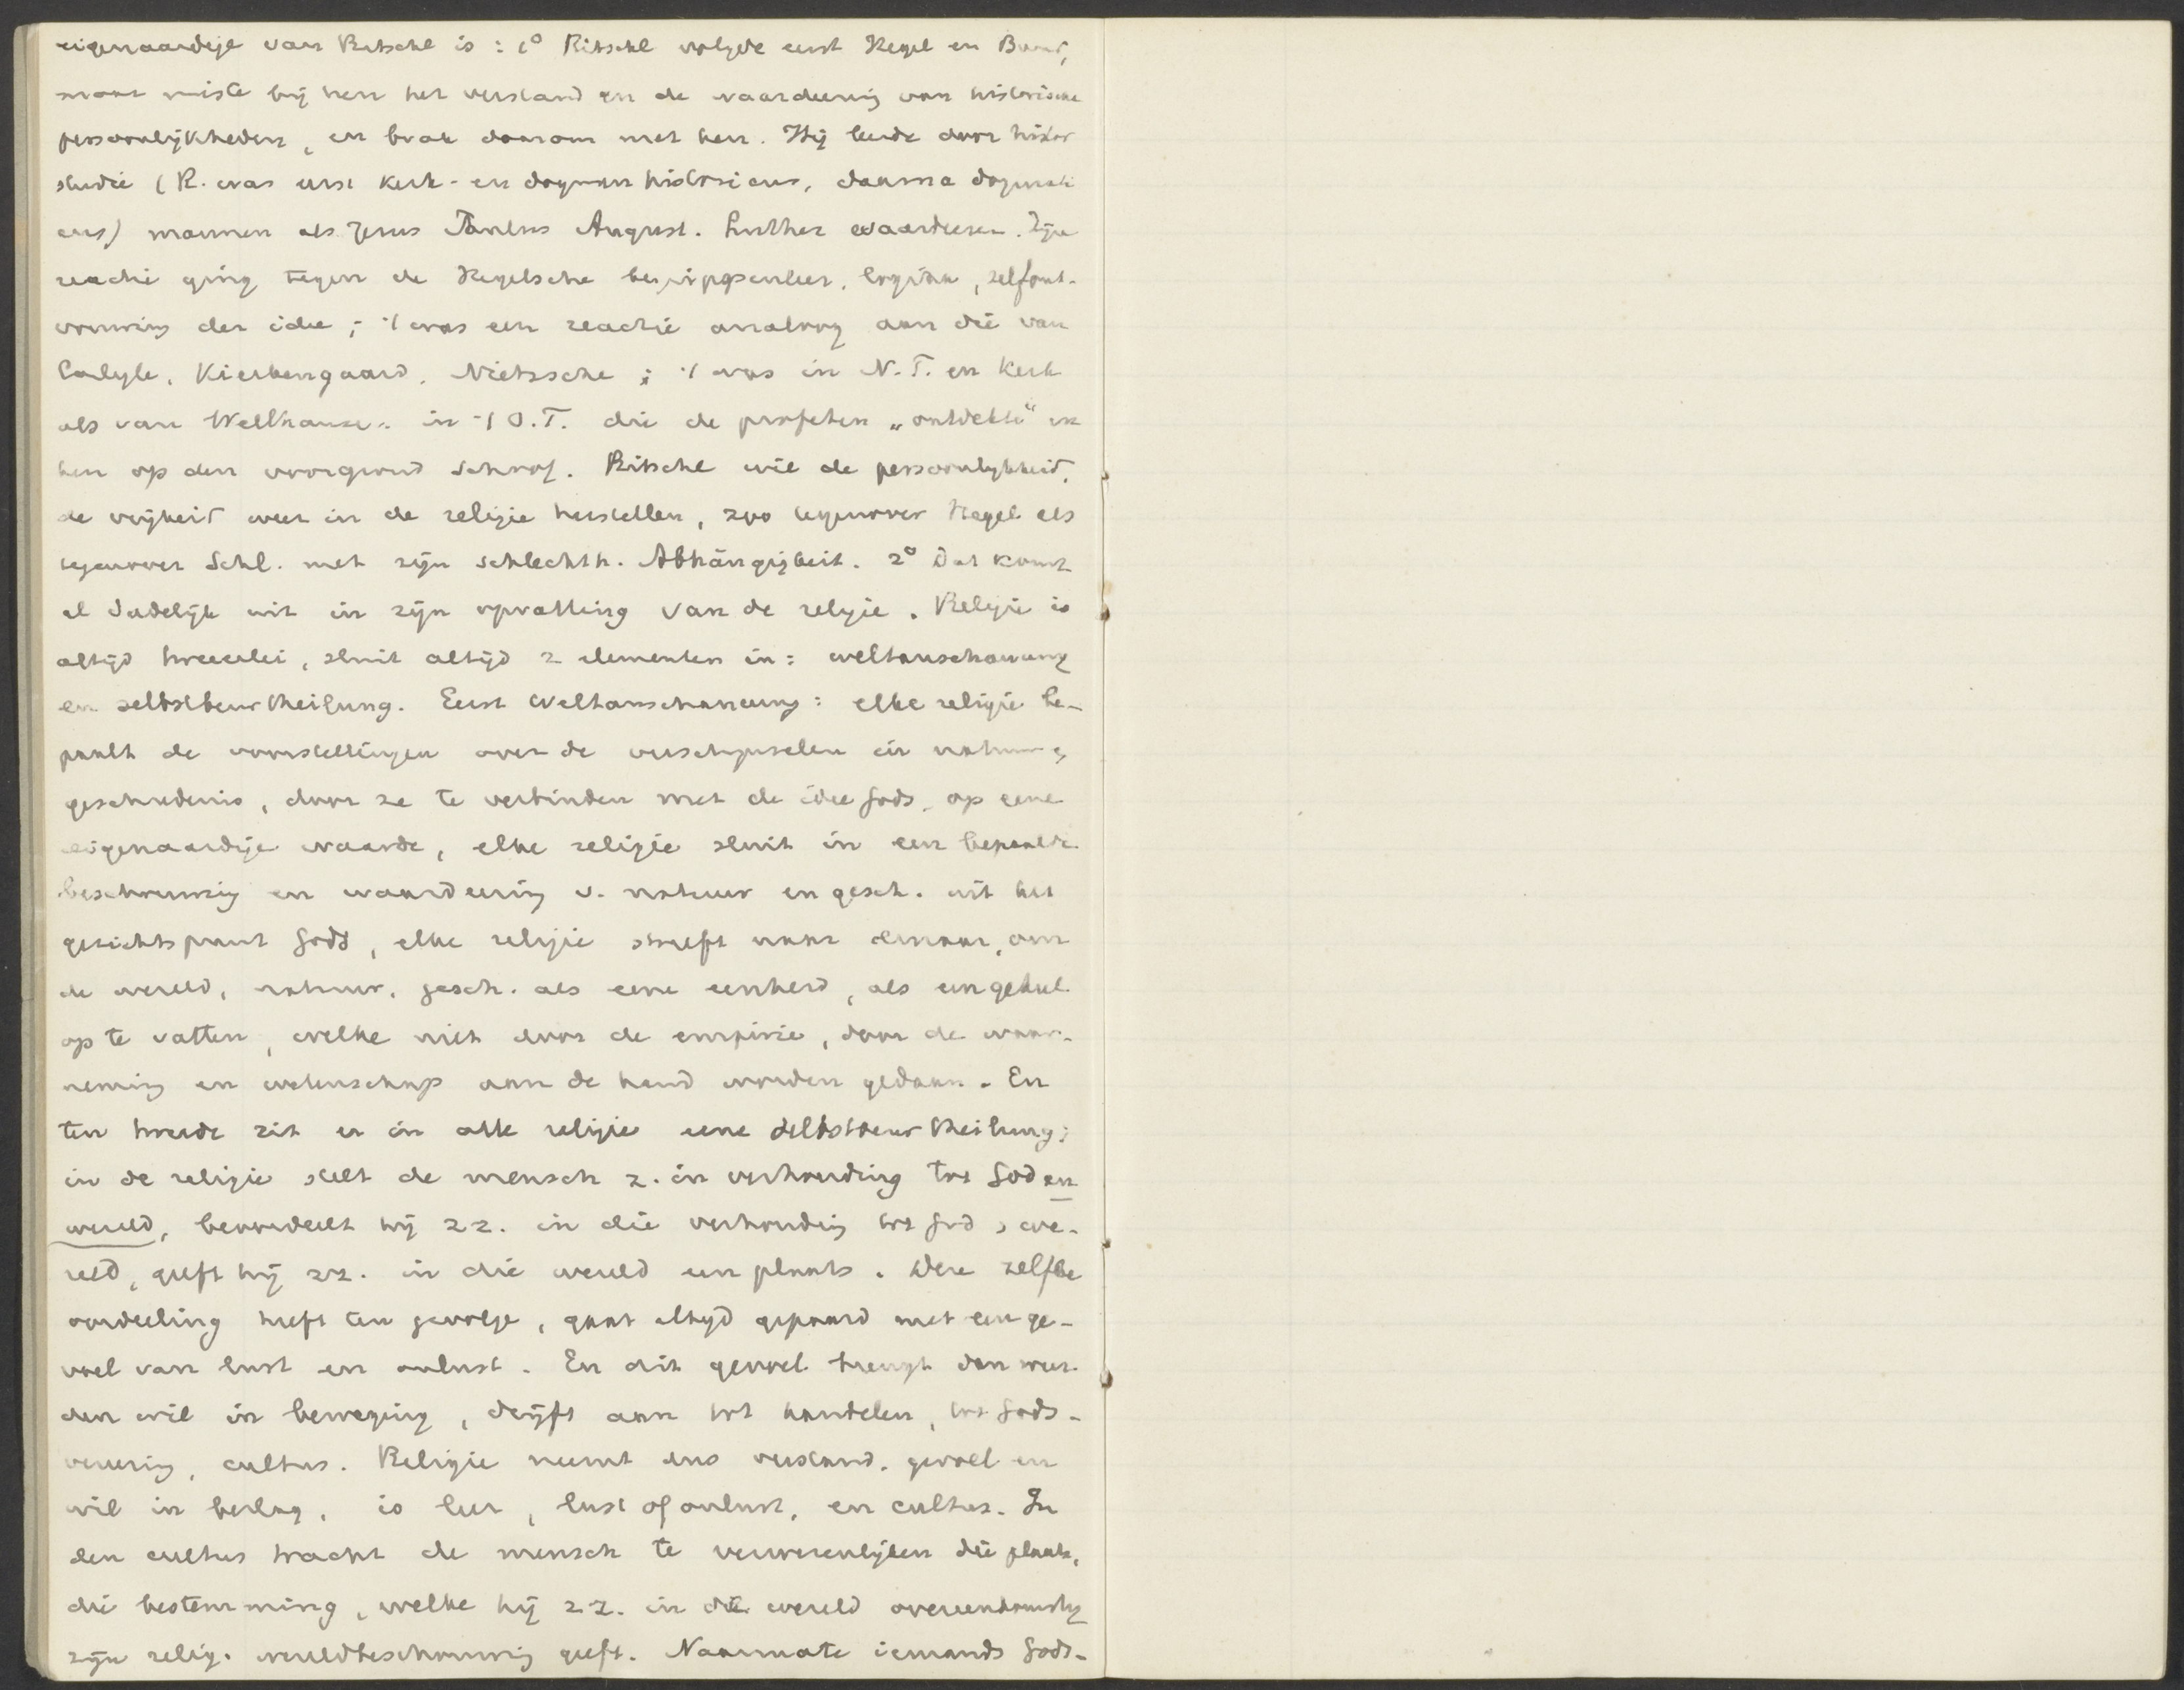 eigenaardige van Ritschl is: 1° Ritschl volgde eerst Hegel en Baur,
maar miste bij hen het verstand en de waardeering van historische
persoonlijkheden, en brak daarom met hen. Hij leerde door histor
studie (R. was eerst kerk- en dogmen historicus, daarna dogmati
cus) mannen als Jezus Paulus August. Luther waardeeren. Zijn
reactie ging tegen de Hegelsche begrippenleer, logism, zelfont-
vouwing der idee; 't was een reactie analoog aan die van
Carlyle, Kierkengaard, Nietzsche; 't was in N.T. en Kerk
als van Wellhausen in 't O.T. die de profeten „ontdekte" en
hen op den voorgrond schoof. Ritschl wil de persoonlijkheid,
de vrijheid weer in de religie herstellen, zoo tegenover Hegel als
tegenover Schl. met zijn schlechth. Abhängigkeit. 2° Dat komt
al dadelijk uit in zijn opvatting van de religie. Religie is
altijd tweeerlei, sluit altijd 2 elementen in: weltanschauung
en selbstbeurtheilung. Eerst Weltanschauung: elke religie be-
paalt de voorstellingen over de verschijnselen in natuur,
geschiedenis, door ze te verbinden met de idee Gods, op eene
eigenaardige waarde, elke religie sluit in een bepaalde
beschouwing en waardeering v. natuur en gesch. uit het
gezichtspunt Gods, elke religie streeft naar daarnaar, om
de wereld, natuur, gesch. als eene eenheid, als een geheel
op te vatten, welke niet door de empirie, door de waar-
neming en wetenschap aan de hand worden gedaan. En
ten tweede zit er in alle religie eene selbstbeurtheilung;
in de religie stelt de mensch z. in verhouding tot God en
wereld, beoordeelt hij zz. in die verhouding tot God, we-
reld, geeft hij zz. in die wereld een plaats. Deze zelfbe
oordeeling heeft ten gevolge, gaat altijd gepaard met een ge-
voel van lust en onlust. En dit gevoel brengt dan weer
den wil in beweging, drijft aan tot handelen, tot Gods-
vereering, cultus. Religie neemt dus verstand, gevoel en
wil in beslag, is leer, lust of onlust, en cultus. In
den cultus tracht de mensch te verwezenlijken die plaats,
die bestemming, welke hij zz. in die wereld overeenkomstig
zijn relig. wereldbeschouwing geeft. Naarmate iemands Gods-